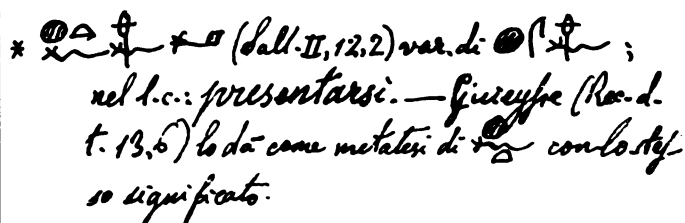 * (Sall. II, 12, 2) var. di ;
nel l. c.: presentarsi. — Guieysse (Rec. d.
t. 13, 6) lo dà come metatesi di con lo stes-
so significato.